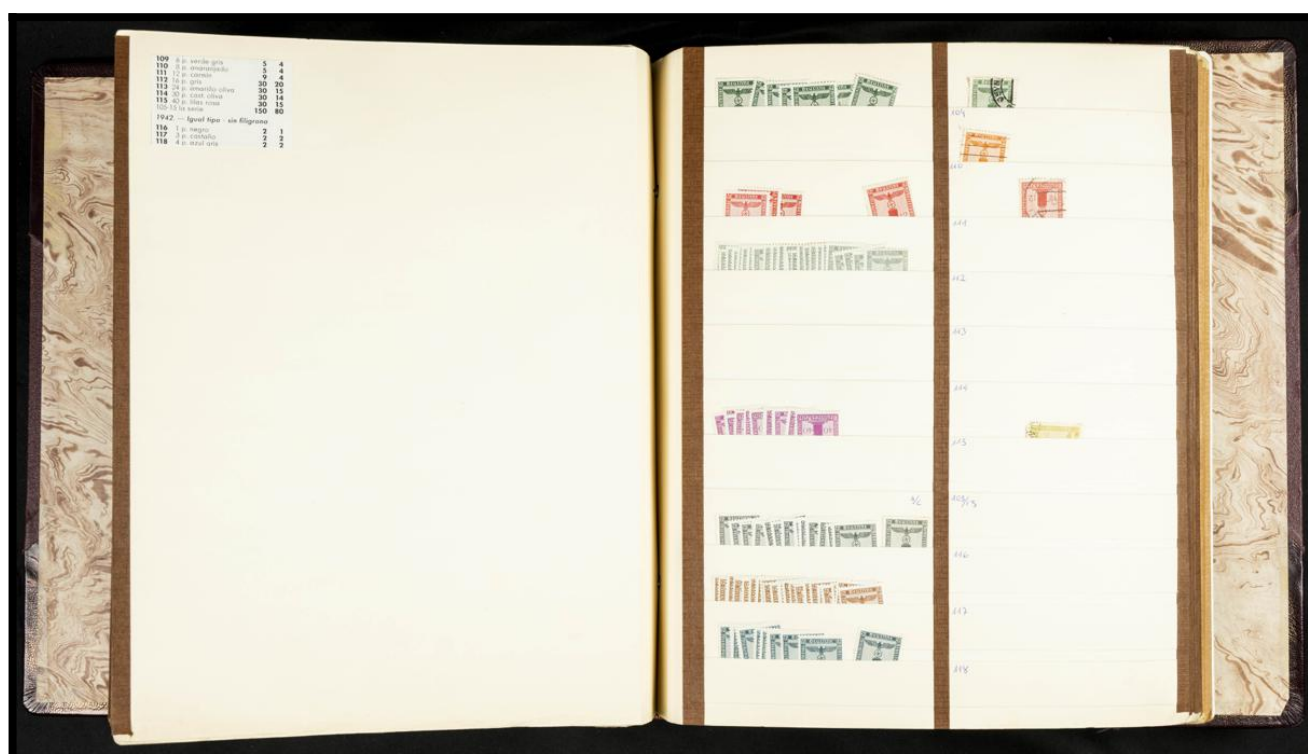 109 6 p. verde gris 5 4
110 8 p. anaranjado 5 4
111 12 p. carmín 9 4
112 16 p. gris 30 20
113 24 p. amarillo oliva 30 15
114 30 p. cast. oliva 30 14
115 40 p. lilas rosa 30 15
105-15 la serie 150 80
1942 — Igual tipo - sin filigrana
116 1 p. negro 2 1
117 3 p. castaño 2 2
118 4 p. azul gris 2 2
109
110
111
112
113
114
115
109/15
116
117
118